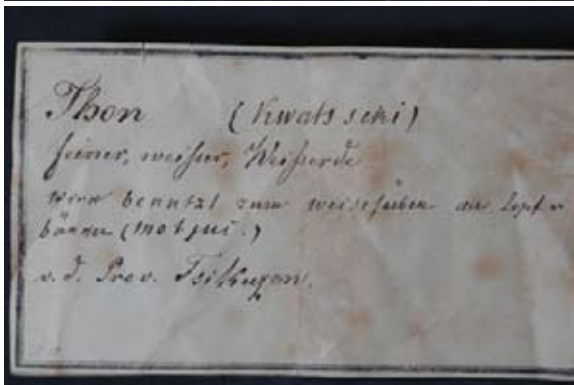 Thon (Kwatsschi)
feiner, weißer, Weißerde
wird benutzt zum weissfärben der
bänder (motjui.)
v. d. Prov. Tsikugen.